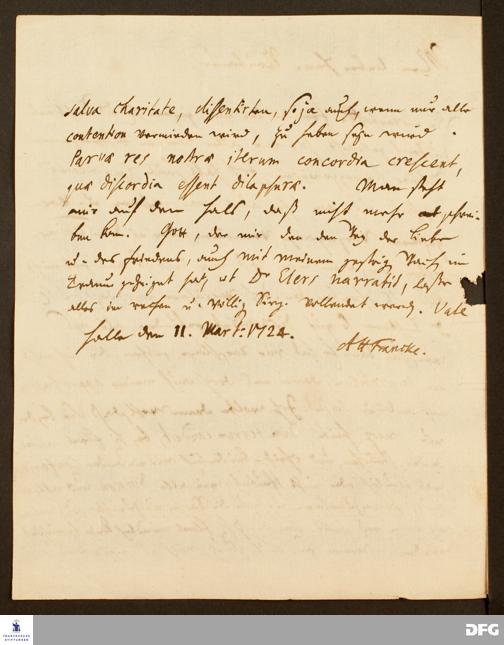 salva charitate, dissentiren, so ja auch, wenn nur alle
contention vermieden wird, zu haben seyn wird.
Parvæ res nostræ iterum concordia crescent,
quæ discordia essent dilapsuræ. Man steht
mir auf dem Hals, daß nicht mehr schrei-
ben kan. Gott, der mir den den Weg der Liebe
u. des friedens, auch mit meinem
gezeiget hat, ut Dr Elers narrabit, laße
alles im u. völlig vollendet werden. Vale
Halle den 11. Mart: 1724.
AHFrancke.
FRANCKESCHE
STIFTUNGEN
DFG